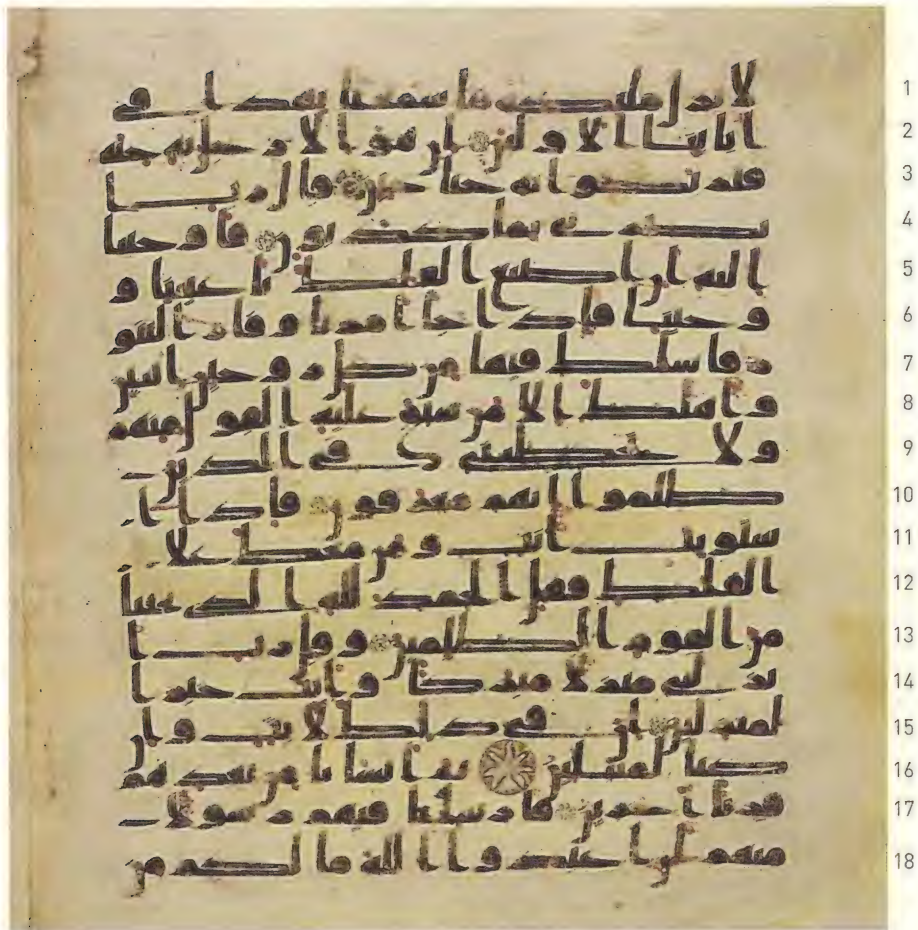 1 لانزل ملىكة ما سمعنا بهذا في
2 اباىنا الاولين ان هو الا رجل به جنة
3 فتربصوا به حتى حين قال رب ا
4 نصرني بما كذبون فاوحينا
5 اليه ان اصنع الفلك باعيننا و
6 وحينا فاذا جا امرنا وفار التنو
7 ر فاسلك فيها من كل زوجين اثنين
8 واهلك الا من سبق عليه القول منهم
9 ولا تخطبني في الذين
10 ظلموا انهم مغرقون فاذا ا
11 ستويت انت ومن معك علا
12 الفلك فقل الحمد لله الذي نجينا
13 من القوم الظلمين وقل رب ا
14 نزلني منزلا مبركا وانت خير ا
15 لمنزلين ان في ذلك لايت وان
16 كنا لمبتلين ثم انشانا من بعدهم
17 قرنا اخرين فارسلنا فيهم رسولا
18 منهم ان اعبدوا الله ما لكم من